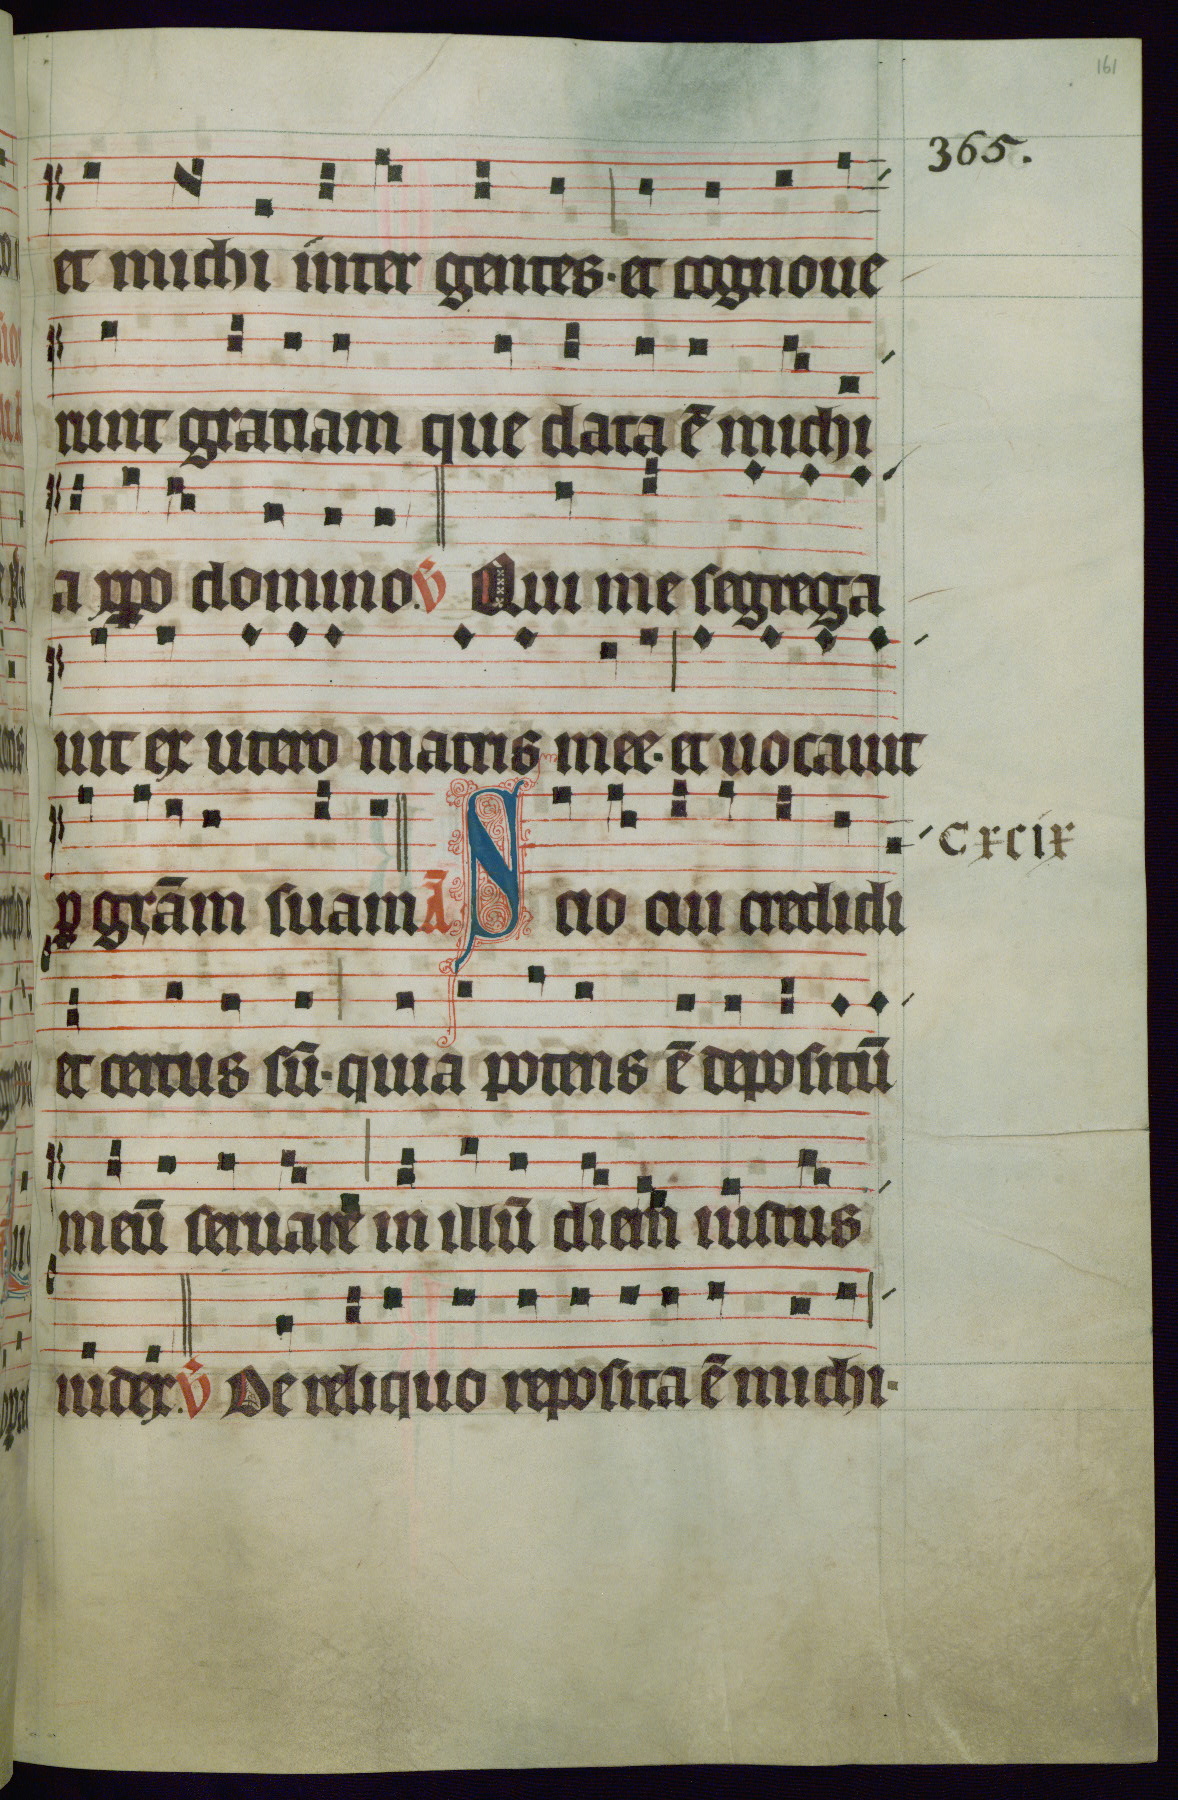 161
365.
et michi inter gentes· et cognoue
runt gratiam que data ē michi
a xp̄o domino. v̄ Qui me segrega
uit ex utero matris mee· et uocauit
ꝑ grām suam Ā Scio cui credidi
Cxcix
et certus sū· quia potens ē depositū
meū seruare in illū diem iustus
iudex. v̄ De reliquo reposita ē michi·